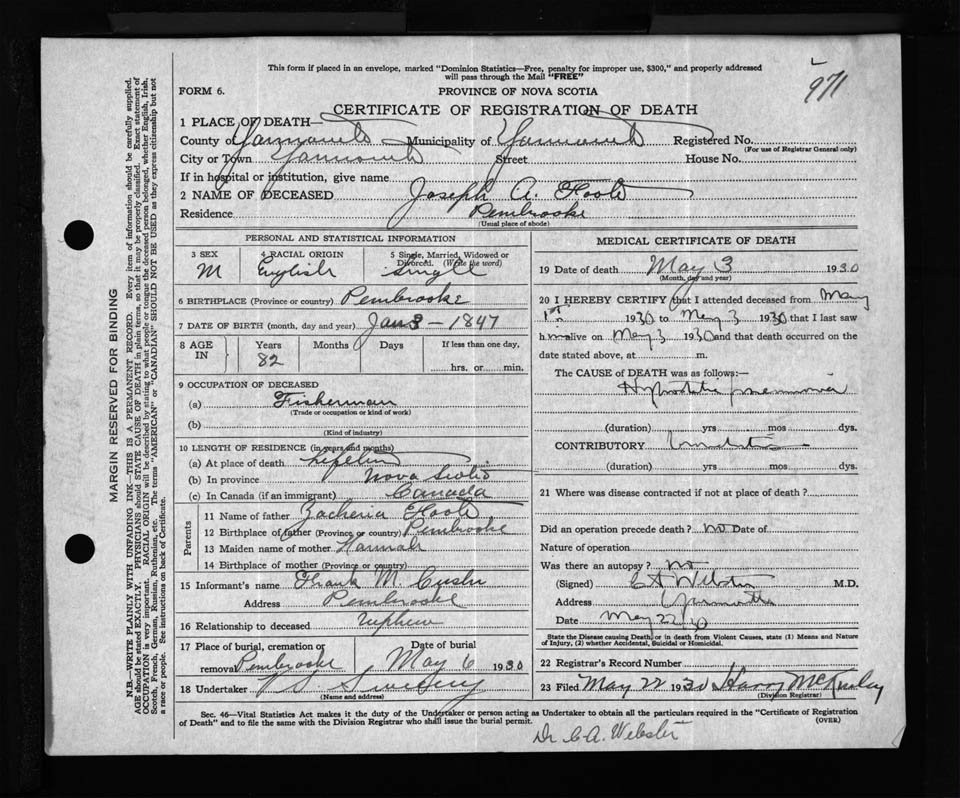 971
This form if placed in an envelope, marked "Dominion Statistics—Free, penalty for improper use, $300," and properly addressed
will pass through the Mail "FREE"
FORM 6.
PROVINCE OF NOVA SCOTIA
CERTIFICATE OF REGISTRATION OF DEATH
1 PLACE OF DEATH—
County of Yarmouth Municipality of Yarmouth Registered No.
(For use of Registrar General only)
City or Town Yarmouth Street House No.
If in hospital or institution, give name
2 NAME OF DECEASED Joseph A. Foote
Residence Pembrooke
(Usual place of abode)
PERSONAL AND STATISTICAL INFORMATION
3 SEX 4 RACIAL ORIGIN 5 Single, Married, Widowed or
Divorced. (Write the word)
M English Single
6 BIRTHPLACE (Province or country) Pembrooke
7 DATE OF BIRTH (month, day and year) Jan 3 - 1847
8 AGE IN Years Months Days If less than one day,
82 hrs. or min.
9 OCCUPATION OF DECEASED
(a) Fisherman
(Trade or occupation or kind of work)
(b)
(Kind of industry)
10 LENGTH OF RESIDENCE (in years and months)
(a) At place of death
(b) In province Nova Scotia
(c) In Canada (if an immigrant) Canada
Parents
11 Name of father Zacheria Foote
12 Birthplace of father (Province or country) Pembrooke
13 Maiden name of mother Hannah
14 Birthplace of mother (Province or country)
15 Informant's name Frank M
Address Pembrooke
16 Relationship to deceased Nephew
17 Place of burial, cremation or Date of burial
removal Pembrooke May 6 1930
18 Undertaker Sweeny
(Name and address)
MEDICAL CERTIFICATE OF DEATH
19 Date of death May 3 1930
(Month, day and year)
20 I HEREBY CERTIFY that I attended deceased from May
1st 1930 to May 3 1930 that I last saw
him alive on May 3 1930 and that death occurred on the
date stated above, at m.
The CAUSE of DEATH was as follows:—
Hypostatic pneumonia
(duration) yrs mos dys.
CONTRIBUTORY
(duration) yrs. mos. dys.
21 Where was disease contracted if not at place of death?
Did an operation precede death? no Date of
Nature of operation
Was there an autopsy? no
(Signed) C A Webster M.D.
Address Yarmouth
Date May 22 30
State the Disease causing Death, or in death from Violent Causes, state (1) Means and Nature
of Injury, (2) whether Accidental, Suicidal or Homicidal.
22 Registrar's Record Number
23 Filed May 22 1930 Harry
(Division Registrar)
Sec. 46—Vital Statistics Act makes it the duty of the Undertaker or person acting as Undertaker to obtain all the particulars required in the "Certificate of Registration
of Death" and to file the same with the Division Registrar who shall issue the burial permit. (OVER)
Dr. C.A. Webster
MARGIN RESERVED FOR BINDING
N.B.—WRITE PLAINLY WITH UNFADING INK—THIS IS A PERMANENT RECORD. Every item of information should be carefully supplied.
AGE should be stated EXACTLY. PHYSICIANS should STATE CAUSE OF DEATH in plain terms, so that it may be properly classified. Exact statement of
OCCUPATION is very important. RACIAL ORIGIN will be described by stating to what people or tongue the deceased person belonged, whether English, Irish,
Scotch, French, German, Russian, Ruthenian, etc. The terms "AMERICAN" or "CANADIAN" SHOULD NOT BE USED as they express citizenship but not
a race or people. See instructions on back of Certificate.